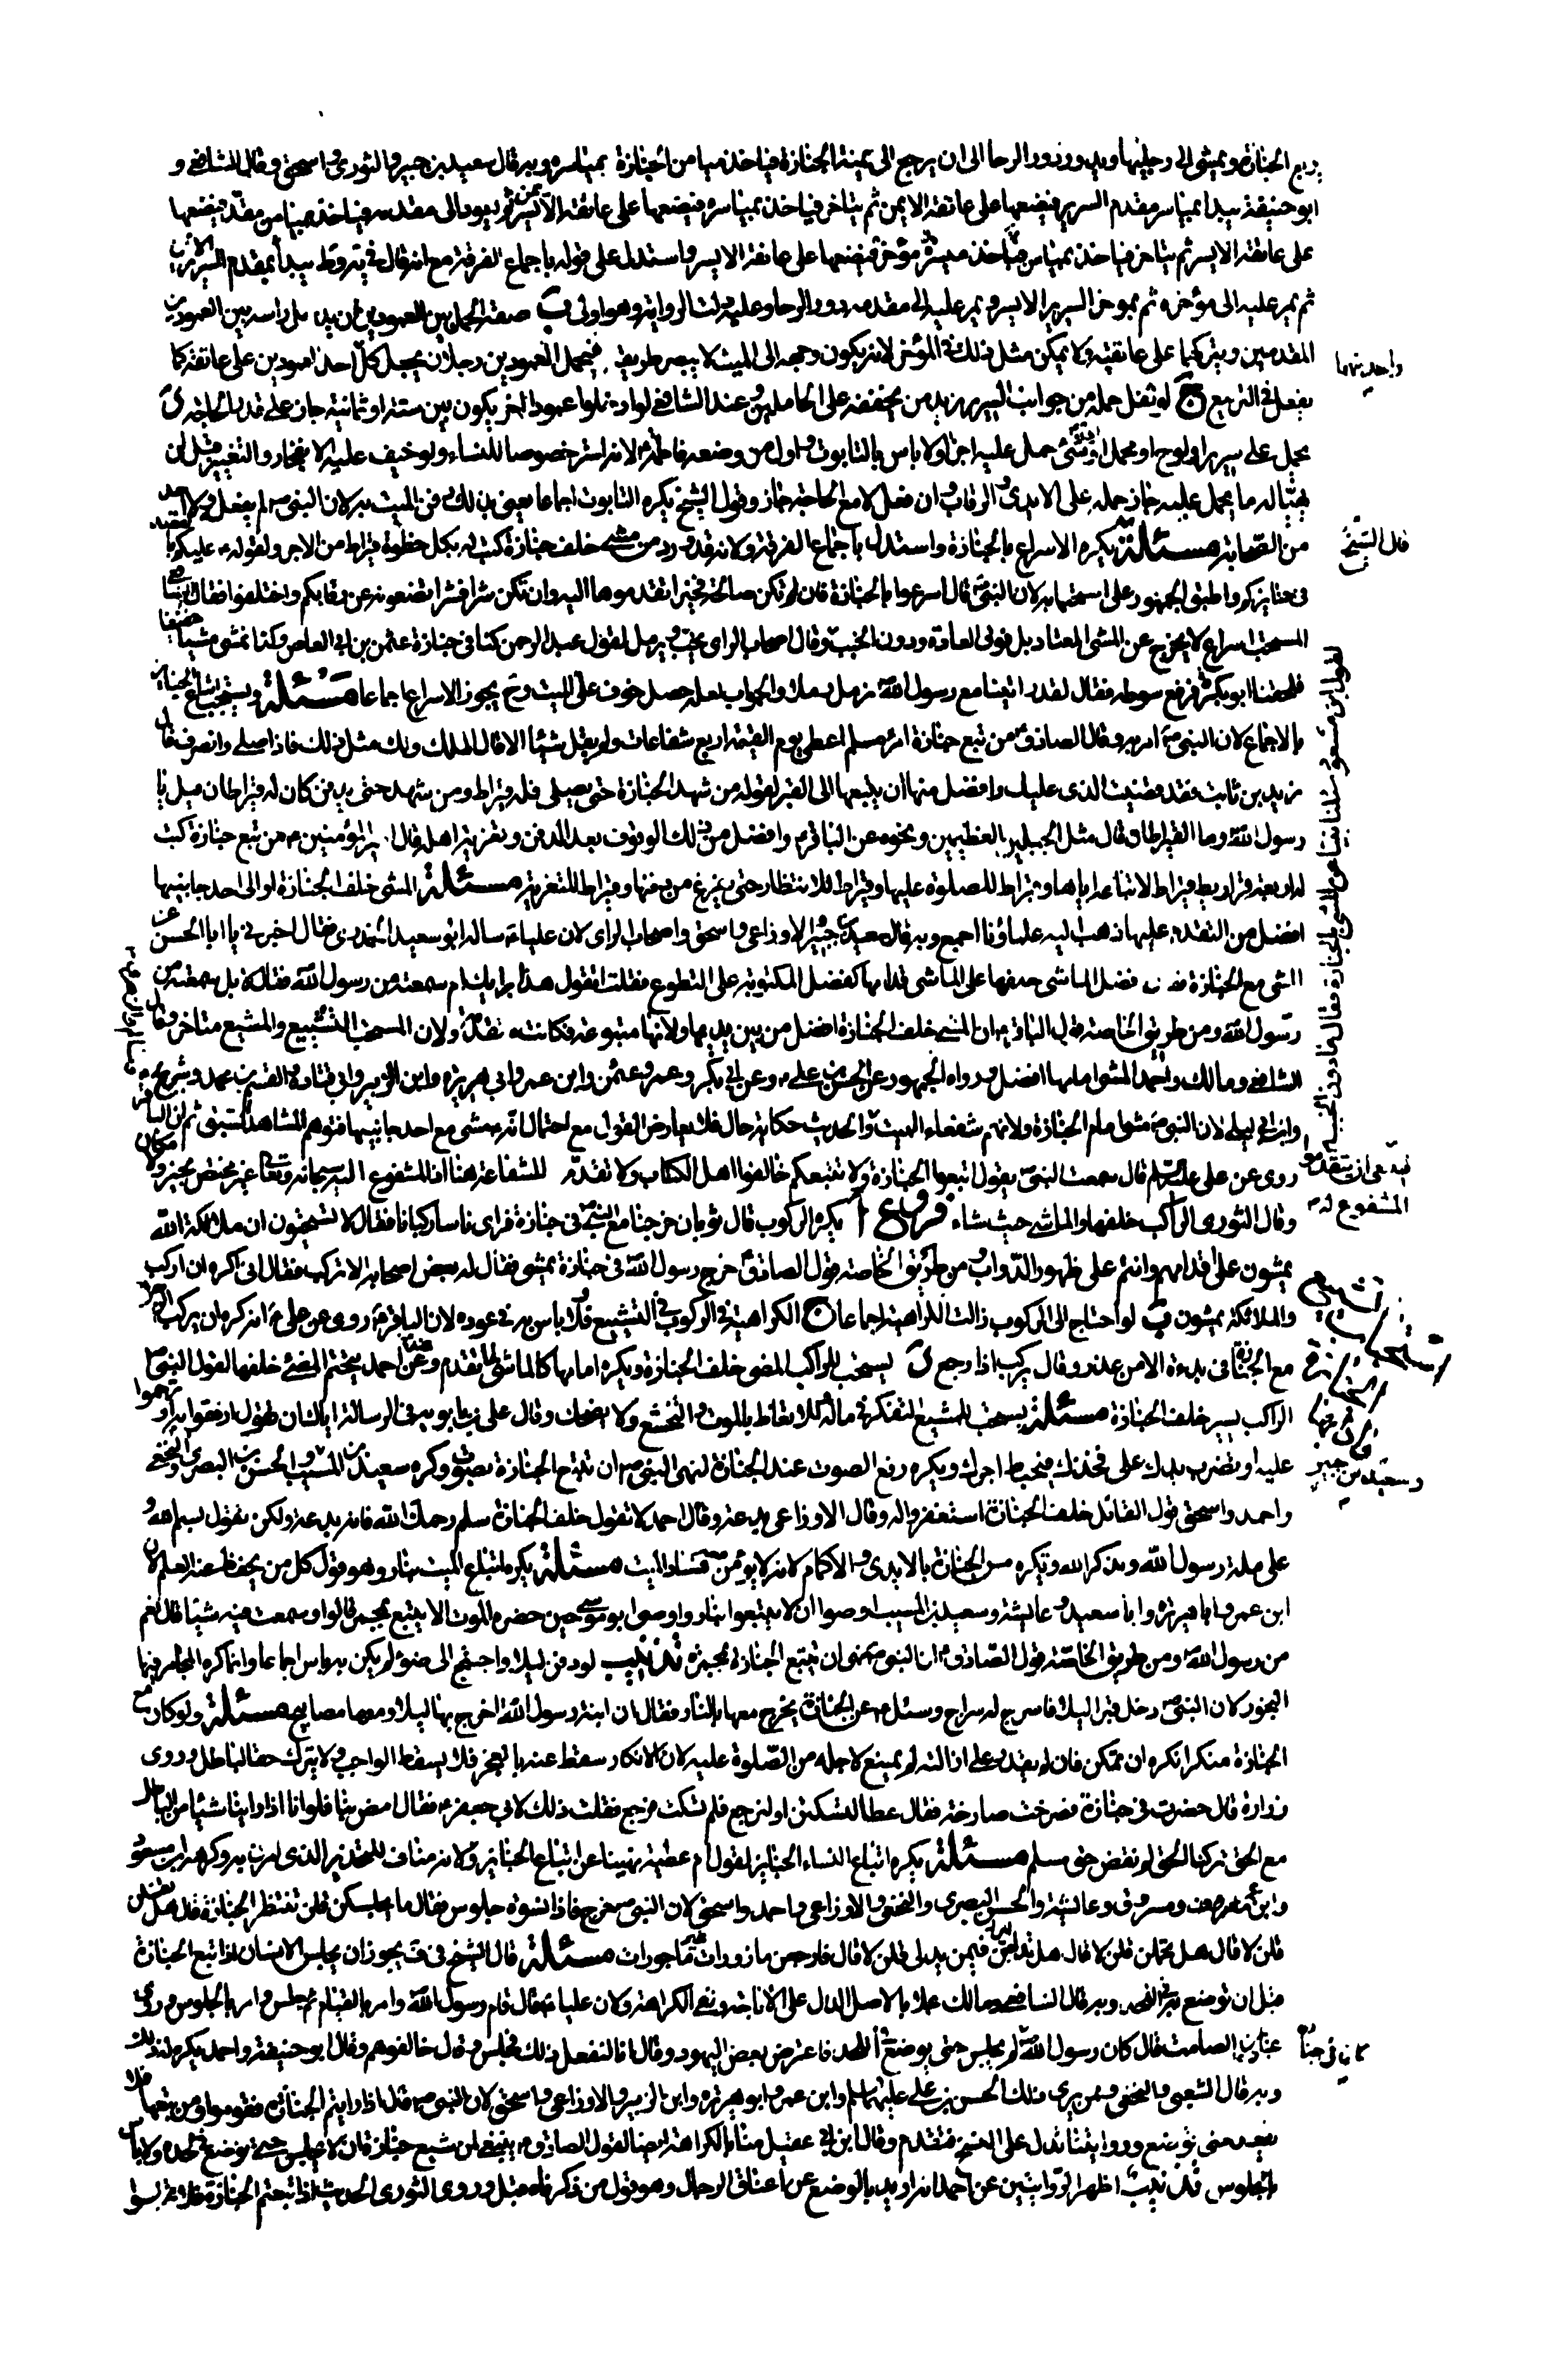 ربع الجنازة ويمشي الى رجليها ويدور دور الرحا الى ان يرجع الى يمنة الجنازة فياخذ ميامن الجنازة بمياسره وبه قال سعيد بن جبير والثوري واسحق وقال الشافعي و
ابو حنيفة يبدا بمياسر مقدم السرير فيضعها على عاتقه الايمن ثم يتاخر فياخذ بمياسره فيضعها على عاتقه الايمن ثم يعود الى مقدمه فياخذ ميامن مقدمه فيضعها
على عاتقه الايسر ثم يتاخر فياخذ بميامن مؤخره فيضعها على عاتقه الايسر واستدل على قوله باجماع الفرقة مع انه قال في يه وط يبدأ بمقدم السرير الايمن
ثم يمر عليه الى مؤخره ثم بمؤخر السرير الايسر ويمر عليه الى مقدمه دور الرحا وعليه دلت الرواية وهو اولى ب صفة الحمل بين العمودين ان يدخل راسه بين العمودين
المقدمين ويتركهما على عاتقيه ولا يمكن مثل ذلك في المؤخر لانه يكون وجهه الى الميت لا يبصر طريقه فيحمل العمودين رجلان يجعل كل احد العمودين على عاتقه كما
يفعل في التربيع ج لو ثقل حمله من جوانب السرير زيد من يخففه على الحاملين وعند الشافعي لو ادخلوا عمودا اخر يكون بين ستة او ثمانية جاز على قدر الحاجة د
يحمل على سرير او لوح او محمل واي شي حمل عليه اجزا ولا باس بالتابوت واول من وضعه فاطمة لانه استر خصوصا للنساء ولو خيف عليه الانفجار والتغيير قبل ان
يهيأ له ما يحمل عليه جاز حمله على الايدي والرقاب وان فعل لا مع الحاجة جاز وقول الشيخ يكره التابوت اجماعا يعني بذلك دفن الميت به لان النبي ص لم يفعل ولا احد
من الصحابة مسئلة يكره الاسراع بالجنازة واستدل باجماع الفرقة ولانه قد ورد من مشى خلف جنازة كتب له بكل خطوة قيراط من الاجر ولقوله ع عليكم بالقصد
في جنايزكم واطبق الجمهور على استحبابه لان النبي ص قال اسرعوا بالجنازة فان لم تكن صالحة فخير تقدموها اليه وان تكن شرا فشر تضعونه عن رقابكم واختلفوا فقال
المستحب اسراع لا يخرج عن المشي المعتاد بل فوق العادة ودون الخبب وقال اصحاب الراي يخب ويرمل لقول عبد الرحمن كنا في جنازة عثمان بن ابي العاص وكنا نمشي مشيا خفيفا
فلحقنا ابو بكرة فرفع سوطه فقال لقد رايتنا مع رسول الله ص نرمل رملا والجواب لعله حصل خوف على الميت وح يجوز الاسراع اجماعا مسئلة ويستحب اتباع الجنايز
بالاجماع لان النبي ص امر به وقال الصادق ع من تبع جنازة امرء مسلم اعطي يوم القيمة اربع شفاعات ولم يقل شيئا الا قال الملك ولك مثل ذلك فاذا صلى وانصرف قال
زيد بن ثابت فقد قضيت الذي عليك وافضل منها ان يتبعها الى القبر لقوله من شهد الجنازة حتى يصلي فله قيراط ومن شهد حتى يدفن كان له قيراطان قيل يا
رسول الله وما القيراطان قال مثل الجبلين العظيمين ونحوه عن الباقر ع وافضل من ذلك الوقوف بعد الدفن وتعزية اهله قال امير المؤمنين ع من تبع جنازة كتب
له اربعة قراريط قيراط لاتباعه اياها وقيراط للصلوة عليها وقيراط للانتظار حتى يفرغ من دفنها وقيراط للتعزية مسئلة المشي خلف الجنازة او الى احد جانبيها
افضل من التقدم عليها ذهب اليه علماؤنا اجمع وبه قال سعيد بن جبير والاوزاعي واسحق واصحاب الراي لان عليا ع ساله ابو سعيد الخدري فقال اخبرني يا ابا الحسن عن
المشي مع الجنازة فقال فضل الماشي خلفها على الماشي قدامها كفضل المكتوبة على التطوع فقلت اتقول هذا برايك ام سمعته من رسول الله فقال بل سمعته من
رسول الله ومن طريق الخاصة قول الباقر ع ان المشي خلف الجنازة افضل من بين يديها ولانها متبوعة فكانت متقدمة ولان المستحب التشييع والمشيع متاخر وقال
الشافعي ومالك واحمد المشي امامها افضل ورواه الجمهور عن الحسن بن علي ع وعن ابي بكر وعمر وعثمن وابن عمر وابي هريرة وابن الزبير وابي قتادة والقسم بن محمد وشريح
وابن ابي ليلى لان النبي ص مشى امام الجنازة ولانهم شفعاء الميت والحديث حكاية حال فلا يعارض القول مع احتمال انه ع مشى مع احد جانبيها فتوهم المشاهد السبق
روي عن علي عليه السلم قال سمعت النبي ص يقول اتبعوا الجنازة ولا تتبعكم خالفوا اهل الكتاب ولا تقدم للشفاعة هنا اذ المشفوع اليه سبحانه وتعالى غير مختص بحيز ولا مكان
وقال الثوري الراكب خلفها والماشي حيث شاء فروع ا يكره الركوب قال ثوبان خرجنا مع النبي ص في جنازة فراى ناسا ركبانا فقال الا تستحيون ان ملائكة الله
يمشون على اقدامهم وانتم على ظهور الدواب ومن طريق الخاصة قول الصادق ع خرج رسول الله في جنازة يمشي فقال له بعض اصحابه الا تركب فقال اني اكره ان اركب
والملائكة يمشون ب لو احتاج الى الركوب زالت الكراهية اجماعا ج الكراهية في الركوب في التشييع فلا باس به في عوده لان الباقر ع روى عن علي ع انه كره ان يركب الرجل
مع الجنازة في بدءة الا من عذر وقال يركب اذا رجع د يستحب للراكب المضي خلف الجنازة ويكره امامها كالماشي لما تقدم وعن احمد يتحتم المضي خلفها لقول النبي ص
الراكب يسير خلف الجنازة مسئلة يستحب للمشيع التفكر في ماله والاتعاظ بالموت والتخشع ولا يضحك وقال علي بن بابويه في الرسالة اياك ان تقول ارفقوا به او ترحموا
عليه او تضرب يدك على فخذك فيحبط اجرك ويكره رفع الصوت عند الجنازة لنهي النبي ص ان تتبع الجنازة بصوت وكره سعيد بن المسيب والحسن البصري والنخعي
واحمد واسحق قول القائل خلف الجنازة استغفروا له وقال الاوزاعي بدعة وقال احمد لا تقول خلف الجنازة سلم رحمك الله فانه بدعة ولكن تقول بسم الله و
على ملة رسول الله ويذكر الله ويكره مس الجنازة بالايدي والاكمام لانه لا يؤمن معه فساد الميت مسئلة يكره اتباع الميت بنار وهو قول كل من يحفظ عنه العلم لان
ابن عمر وابا هريرة وابا سعيد وعايشة وسعيد بن المسيب اوصوا ان لا يتبعوا بنار واوصى ابو موسى حين حضره الموت الا يتبع بمجمر قالوا وسمعت فيه شيئا قال نعم
من رسول الله ص ومن طريق الخاصة قول الصادق ع ان النبي ص نهى ان تتبع الجنازة بمجمرة تذنيب لو دفن ليلا واحتيج الى ضوء لم يكن به باس اجماعا وانما كره المجامر فيها
البخور لان النبي ص دخل قبرا ليلا فاسرج له سراج وسئل ع عن الجنازة يخرج معها بالنار فقال ان ابنة رسول الله اخرج بها ليلا ومعها مصابيح مسئلة ولو كان مع
الجنازة منكر انكره ان تمكن فان لم يقدر على ازالته لم يمتنع لاجله من الصلوة عليه لان الانكار سقط عنه بالعجز فلا يسقط الواجب ولا يترك حقا لباطل وروى
زرارة قال حضرت في جنازة فصرخت صارخة فقال عطا لتسكتن او لنرجعن فلم تسكت فرجع فقلت ذلك لابي جعفر ع فقال امض بنا فلو انا اذا راينا شيئا من الباطل
مع الحق تركنا الحق لم نقض حق مسلم مسئلة يكره اتباع النساء الجنايز لقول ام عطية نهينا عن اتباع الجنايز ولانه مناف للتخدير الذي امرن به وكرهه ابن مسعود
وابن عمر ومسروق وعائشة والحسن البصري والنخعي والاوزاعي واحمد واسحق لان النبي ص خرج فاذا نسوة جلوس فقال ما اجلسكن قلن ننتظر الجنازة قال هل تغسلن
قلن لا قال هل تحملن قلن لا قال هل تدلين فيمن يدلي قلن لا قال فارجعن مازورات غير ماجورات مسئلة قال الشيخ في ف يجوز ان يجلس الانسان اذا تبع الجنازة
قبل ان توضع في اللحد وبه قال الشافعي ومالك عملا بالاصل الدال على الاباحة ونفي الكراهة ولان عليا ع قال قام رسول الله وامر بالقيام ثم جلس وامر بالجلوس وروى
عبادة بن الصامت قال كان رسول الله ص لم يجلس حتى يوضع في اللحد فاعترض بعض اليهود وقال انا لنفعل ذلك فجلس وقال خالفوهم وقال ابو حنيفة واحمد يكره له ذلك
وبه قال الشعبي والنخعي وممن يرى ذلك الحسن بن علي عليهما السلم وابن عمر وابو هريرة وابن الزبير والاوزاعي واسحق لان النبي ص قال اذا رايتم الجنازة فقوموا ومن تبعها فلا
يقعد حتى توضع وروايتنا تدل على النسخ فتقدم وقال ابن ابي عقيل منا بالكراهة ايضا لقول الصادق ع ينبغي لمن شيع جنازة ان لا يجلس حتى توضع في لحده ولا باس
بالجلوس تذنيب اظهر الروايتين عن احمد انه اريد بالوضع عن اعناق الرجال وهو قول من ذكرناه قبل وروى الثوري الحديث اذا تبعتم الجنازة فلا تجلسوا
واحد منهما
قال الشيخ
لقول ابن مسعود سئلنا نبينا عن المشي بالجنازة فقال ما دون الخبب
المشفوع له
وسعيد بن جبير
كان في جنازة